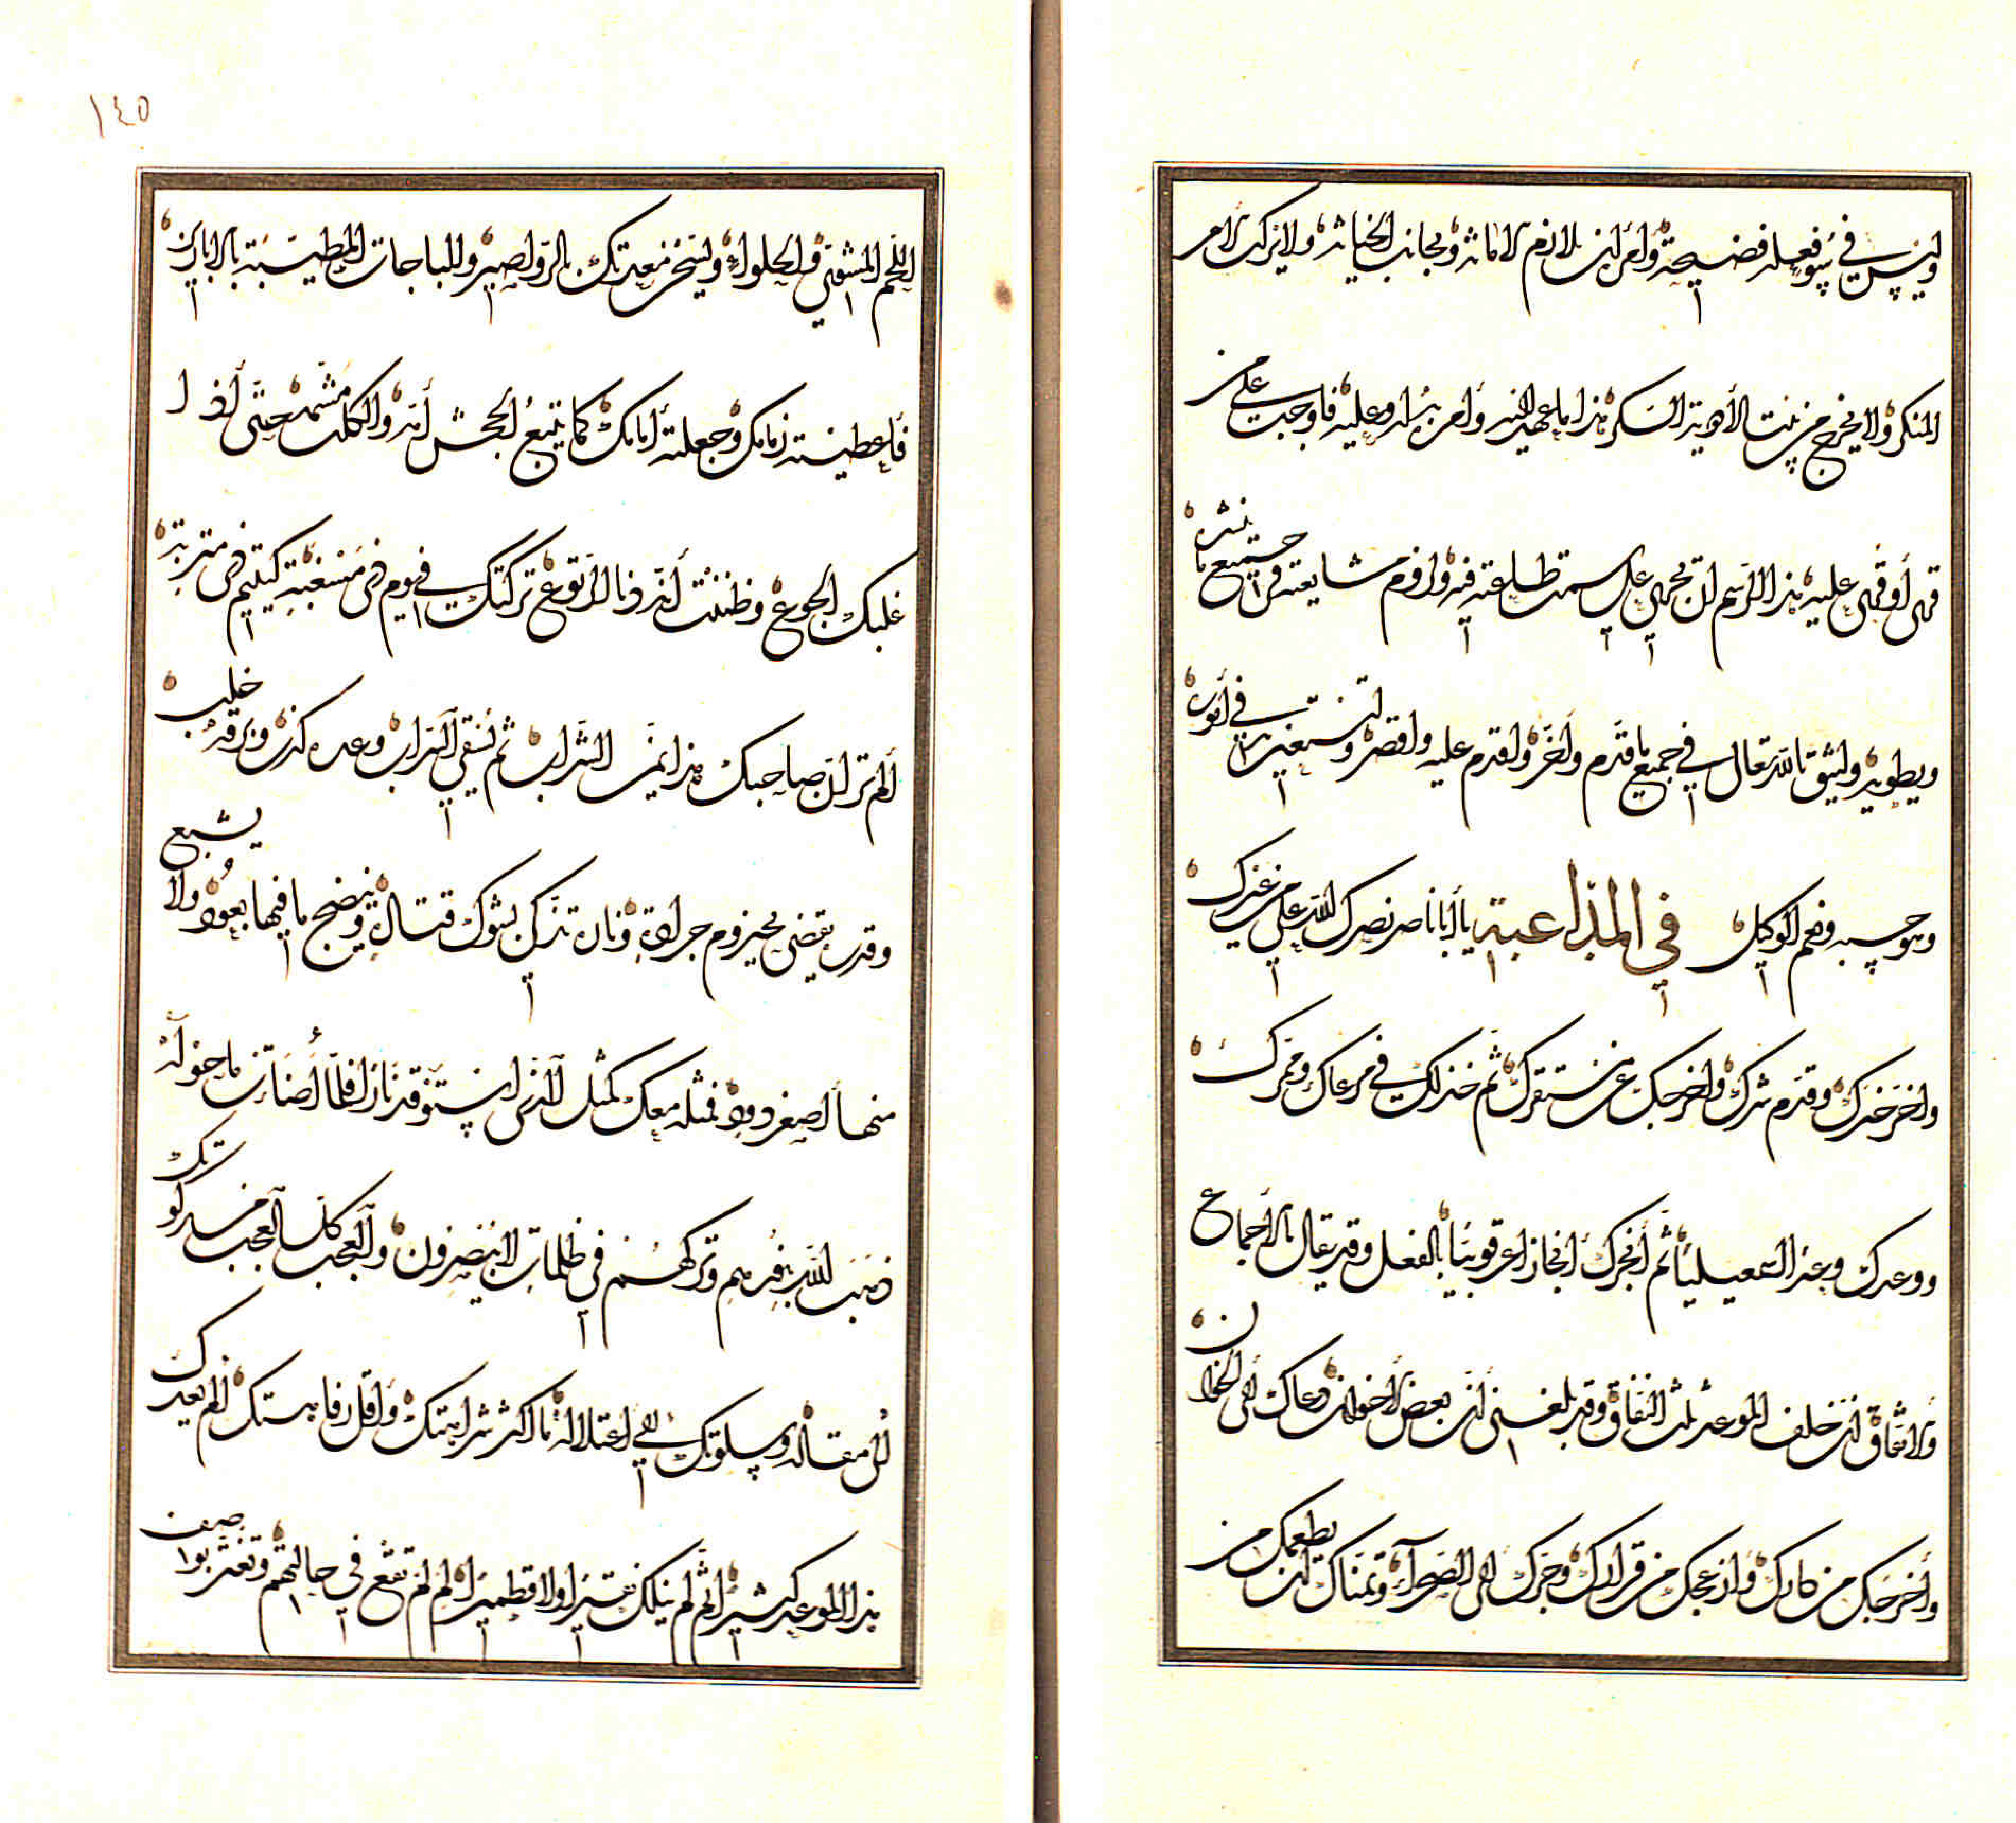 وليس في سوء فعله فضيحة وأمر أن يلازم الأمانة ويجانب الخيانة ولا يركب الأمر
المنكر ولا يخرج من بيت الأهبة السكر هذا ما عهد إليه وأمر به وارد عليه فأوجبت على من
قرى أو قرئ عليه هذا الرسم أن يجري على سمت طاعته فيه والزم مشايعته في جميع ما ينشره
ويطويه وليثق بالله تعالى في جميع ما قدم وأخر وأقدم عليه وأقصر وليستعين به في أموره
وهو حسبه ونعم الوكيل في المداعبة يا أبا ناصر نصرك الله على من غرك
وأخر خيرك وقدم شرك وأخرجك عن مستقرك ثم خذلك في مرعاك وممرك
ووعدك وعدا سمعيليا ثم أنجزك إنجازا عرقوبيا بالفعل وقد يقال بالأجماع
والاتفاق أن خلف الموعد ثلث النفاق وقد بلغني أن بعض الأخوان دعاك إلى الخوان
وأخرجك من كارك وأزعجك من قرارك وجرك إلى الصحراء وتمناك أن يطعمك من
١٤٥
اللحم المشوي والحلواء ويسخر معدتك بالرواصير والباجات المطيبة بالأبازير
فأعطيته زمامك وجعلته أمامك كما يتبع الجحش أمه والكلب مشمه حتى إذا
غلبك الجوع وظننت أنه دنا الوقوع تركتك في يوم ذي مسغبة كيتيم ذي متربة
ألم تر أن صاحبك هذا يمني الشراب ثم يسقي السراب وعده كذب وبرقه خلب
وقدر يقضي بحيزوم جرادة ونار تذكى بشوك قتادة وينضج ما فيها بعود ولا يشبع
منها أصغر دود فمثله معك كمثل الذي استوقد نارا فلما أضاءت ما حوله
ذهب الله بنورهم وتركهم في ظلمات لا يبصرون والعجب كل العجب من سكوتك
إلى مقاله وسلوتك في اعتلاله ما أكثر شراهتك وأقل رفاهيتك ألم يعدك
هذا الموعد كثيرا ثم لم ينلك نقيرا ولا قطميرا ألم لم تقع في حبالتهم وتغتر بوا صف